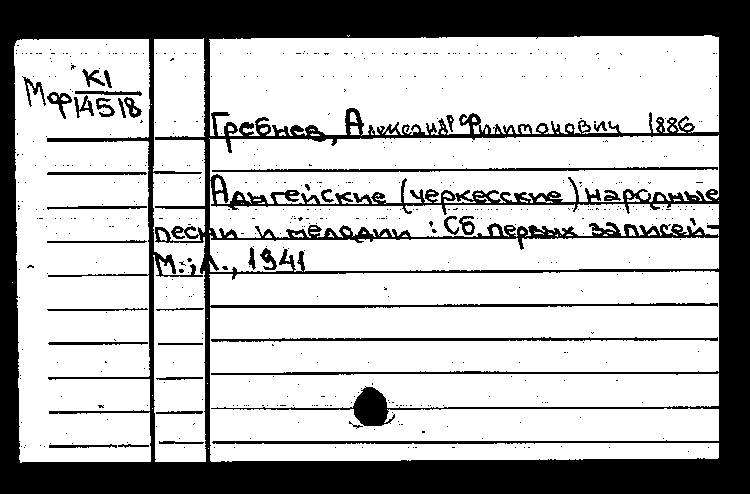 Мф К1
14518
Гребнев, Александр Филимонович 1886
Адыгейские (черкесские) народные
песни и мелодии : Сб. первых записей-
М.; Л., 1941